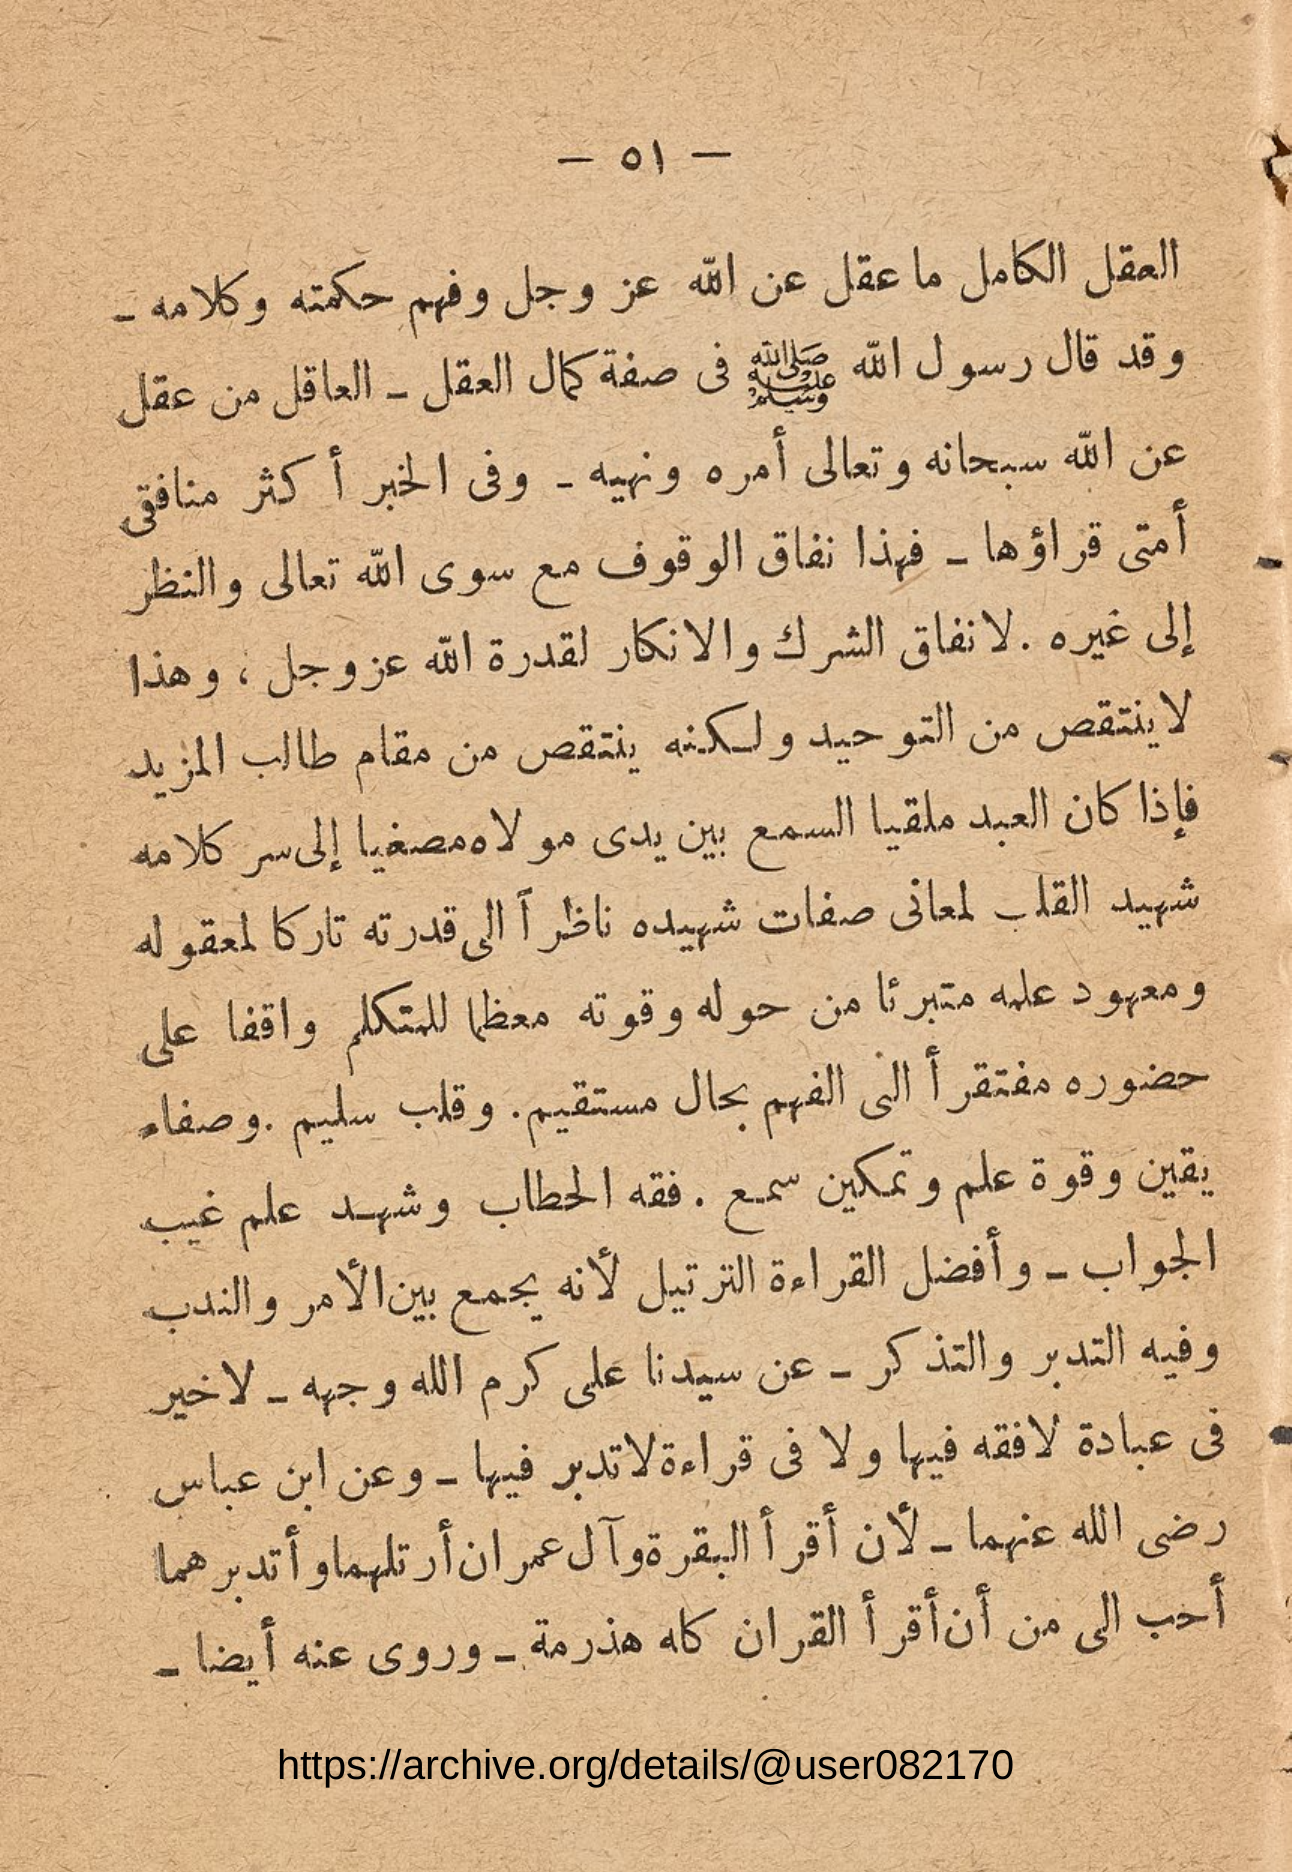 — ٥١ —
العقل الكامل ما عقل عن الله عز وجل وفهم حكمته وكلامه ـ
وقد قال رسول الله ﷺ فى صفة كمال العقل ـ العاقل من عقل
عن الله سبحانه وتعالى أمره ونهيه ـ وفى الخبر أكثر منافقى
أمتى قراؤها ـ فهذا نفاق الوقوف مع سوى الله تعالى والنظر
إلى غيره . لا نفاق الشرك والانكار لقدرة الله عز وجل ، وهذا
لا ينتقص من التوحيد ولكنه ينتقص من مقام طالب المزيد
فإذا كان العبد ملقيا السمع بين يدى مولاه مصغيا إلى سر كلامه
شهيد القلب لمعانى صفات شهيده ناظرأ الى قدرته تاركا لمعقوله
ومعهود علمه متبرئا من حوله وقوته معظما للمتكلم واقفا على
حضوره مفتقرأ الى الفهم بحال مستقيم . وقلب سليم . وصفاء
يقين وقوة علم وتمكين سمع . فقه الخطاب وشهد علم غيب
الجواب ـ وأفضل القراءة الترتيل لأنه يجمع بين الأمر والندب
وفيه التدبر والتذكر ـ عن سيدنا على كرم الله وجهه ـ لا خير
فى عبادة لا فقه فيها ولا فى قراءة لا تدبر فيها ـ وعن ابن عباس
رضى الله عنهما ـ لأن أقرأ البقرة وآل عمران أرتلهما وأتدبرهما
أحب الى من أن أقرأ القران كله هذرمة ـ وروى عنه أيضا ـ
https://archive.org/details/@user082170